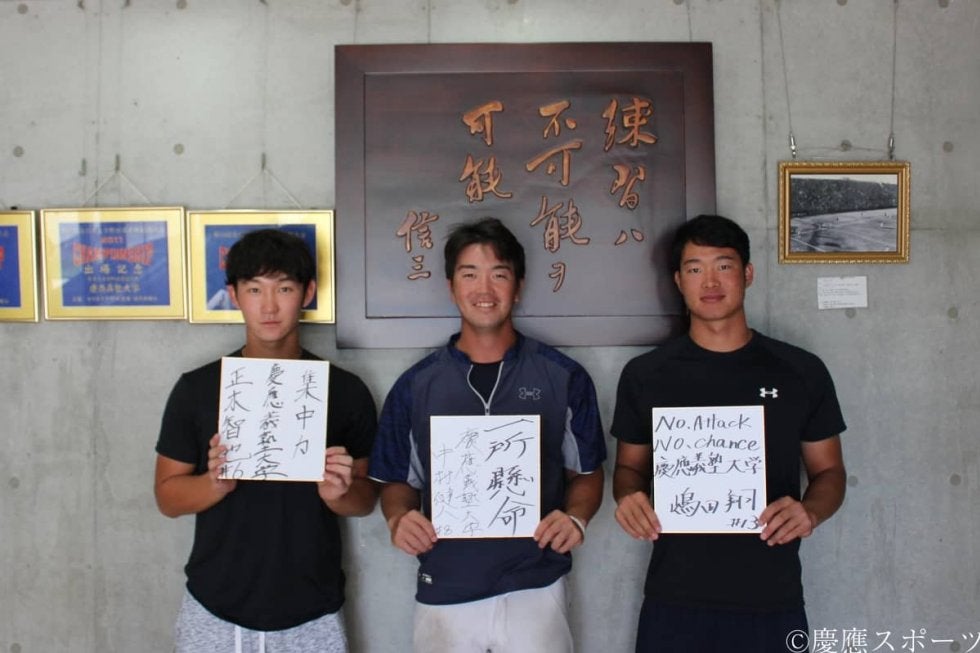 練習ハ
不可能ヲ
可能
信三
出場記念
慶應義塾大学
集中力
慶應義塾大学
正木智也
#6
一所懸命
慶應義塾大学
中村健人
#8
No. Attack
No. chance
慶應義塾大学
嶋田翔
#13
©慶應スポーツ